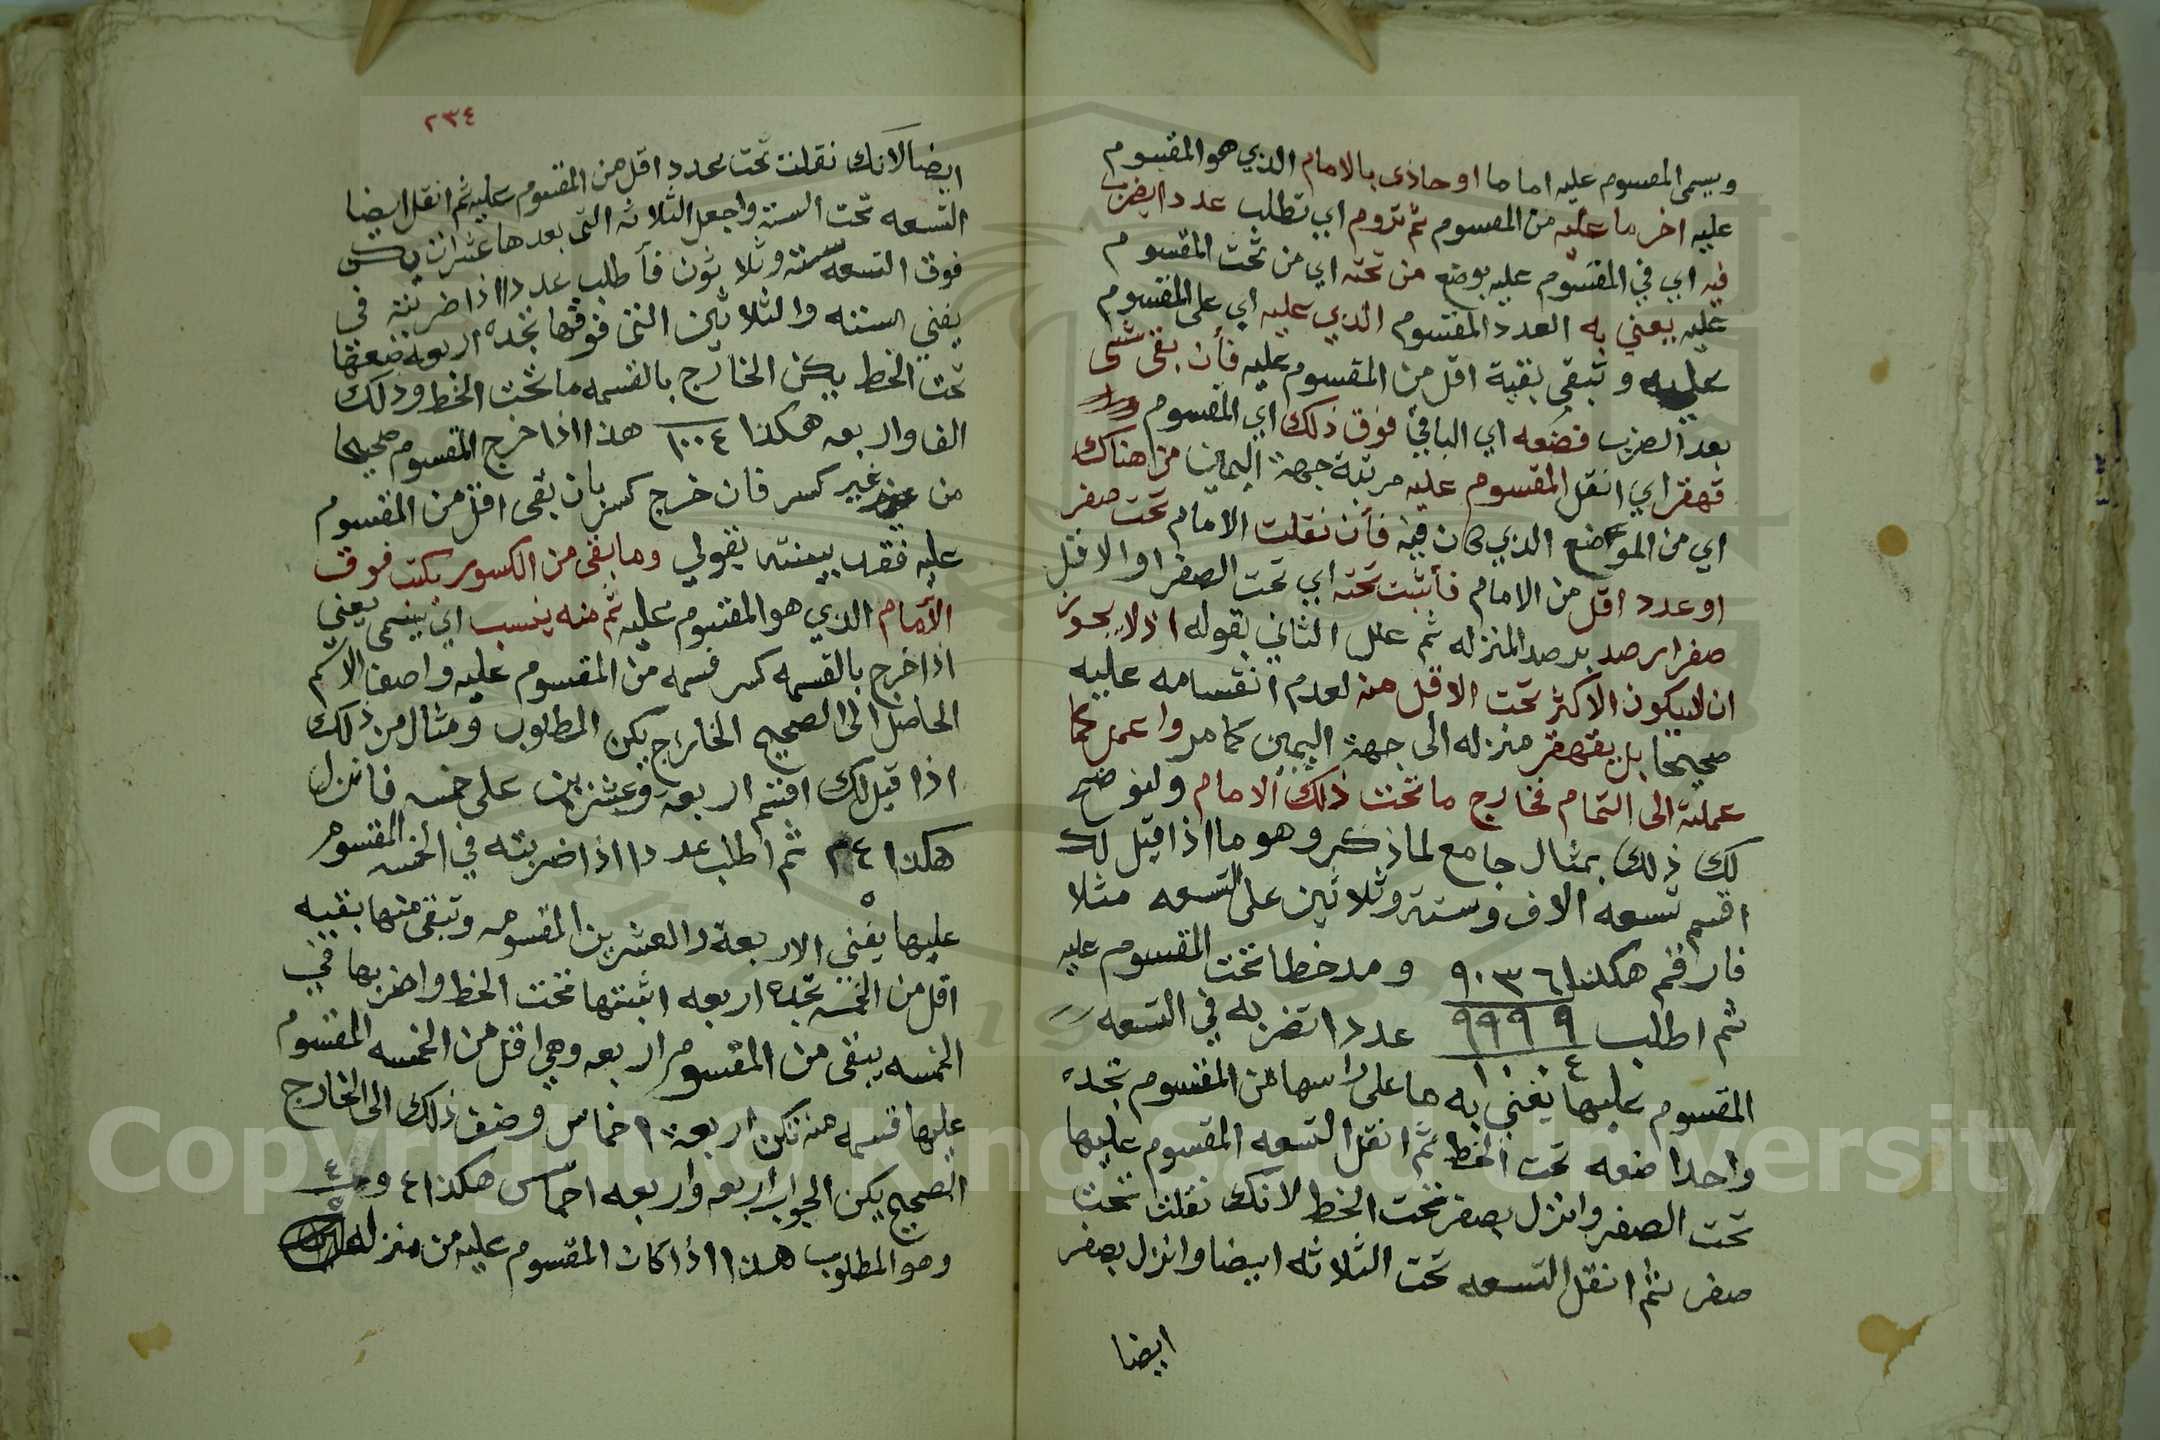 ويسمى المقسوم عليه اماما او حاذى بالامام الذي هو المقسوم
عليه اخر ما عليه من المقسوم ثم تروم اي تطلب عدد ايضرب
فيه اي في المقسوم عليه بوضع من تحته اي من تحت المقسوم
عليه يعني به العدد المقسوم الذي عليه اي على المقسوم
عليه وتبقى بقية اقل من المقسوم عليه فأن بقى شى
بعد الضرب فضعه اي الباقي فوق ذلك اي المقسوم
قهقر اي انقل المقسوم عليه مرتبة جهة اليمين من هناك
اي من الموضع الذي كان فيه فأن نقلت الامام تحت صفر
او عدد اقل من الامام فأثبت تحته اي تحت الصفر او الاقل
صفرا يرصد المنزله ثم علل الثاني بقوله اذ لا يجوز
ان يكون الاكثر تحت الاقل منه لعدم انقسامه عليه
صحيحا بل يقهقر منزله الى جهة اليمين كما مر واعمل كما
عملته الى التمام فخارج ما تحت ذلك الامام ولنوضح
لك ذلك بمثال جامع لما ذكر وهو ما اذا قيل لك
اقسم تسعه الاف وستة وثلاثين على التسعه مثلا
فارقم هكذا ٩٠٣٦ ومد خطا تحت المقسوم عليه
ثم اطلب ٩٩٩٩ عددا تضربه في التسعه
١٠٠٤
المقسوم عليها يفنى به ما على راسها من المقسوم تجده
واحدا ضعه تحت الخط ثم انقل التسعه المقسوم عليها
تحت الصفر وانزل بصفر تحت الخط لانك نقلت تحت
صفر ثم انقل التسعه تحت الثلاثه ايضا وانزل بصفر
ايضا
٢٣٤
ايضا لانك نقلت تحت عدد اقل من المقسوم عليه ثم انقل ايضا
التسعه تحت الستة واجعل الثلاثه التي بعدها عشرات يكن
فوق التسعه ستة وثلاثون فأطلب عددا اذا ضربته في
يفني الستة والثلاثين التي فوقها تجده اربعة ضعها
تحت الخط يكن الخارج بالقسمه ما تحت الخط وذلك
الف واربعه هكذا ١٠٠٤ هذا اذا خرج المقسوم صحيحا
من غير كسر فان خرج كسر بان بقى اقل من المقسوم
عليه فقد بينته بقولي وما بقى من الكسور يكت فوق
الأمام الذي هو المقسوم عليه ثم منه ينسب اي يسمى يعني
اذا خرج بالقسمه كسر فسمه من المقسوم عليه واضف الاسم
الحاصل الى الصحيح الخارج يكن المطلوب ومثال من ذلك
اذا قيل لك اقسم اربعة وعشرين على خمسه فانزل
هكذا ٢٤ ثم اطلب عددا اذا ضربته في الخمسه المقسوم
٥
عليها يفني الاربعة والعشرين المقسومه وتبقى منها بقيه
اقل من الخمسه تجده اربعه اثبتها تحت الخط واضربها في
الخمسه يبقى من المقسوم اربعه وهي اقل من الخمسه المقسوم
عليها فسمه منه تكن اربعة اخماس وضف ذلك الى الخارج
الصحيح يكن الجواب اربعه واربعه اخماس هكذا ٤ و ٤
٥
وهو المطلوب هذا اذا كان المقسوم عليه من منزله